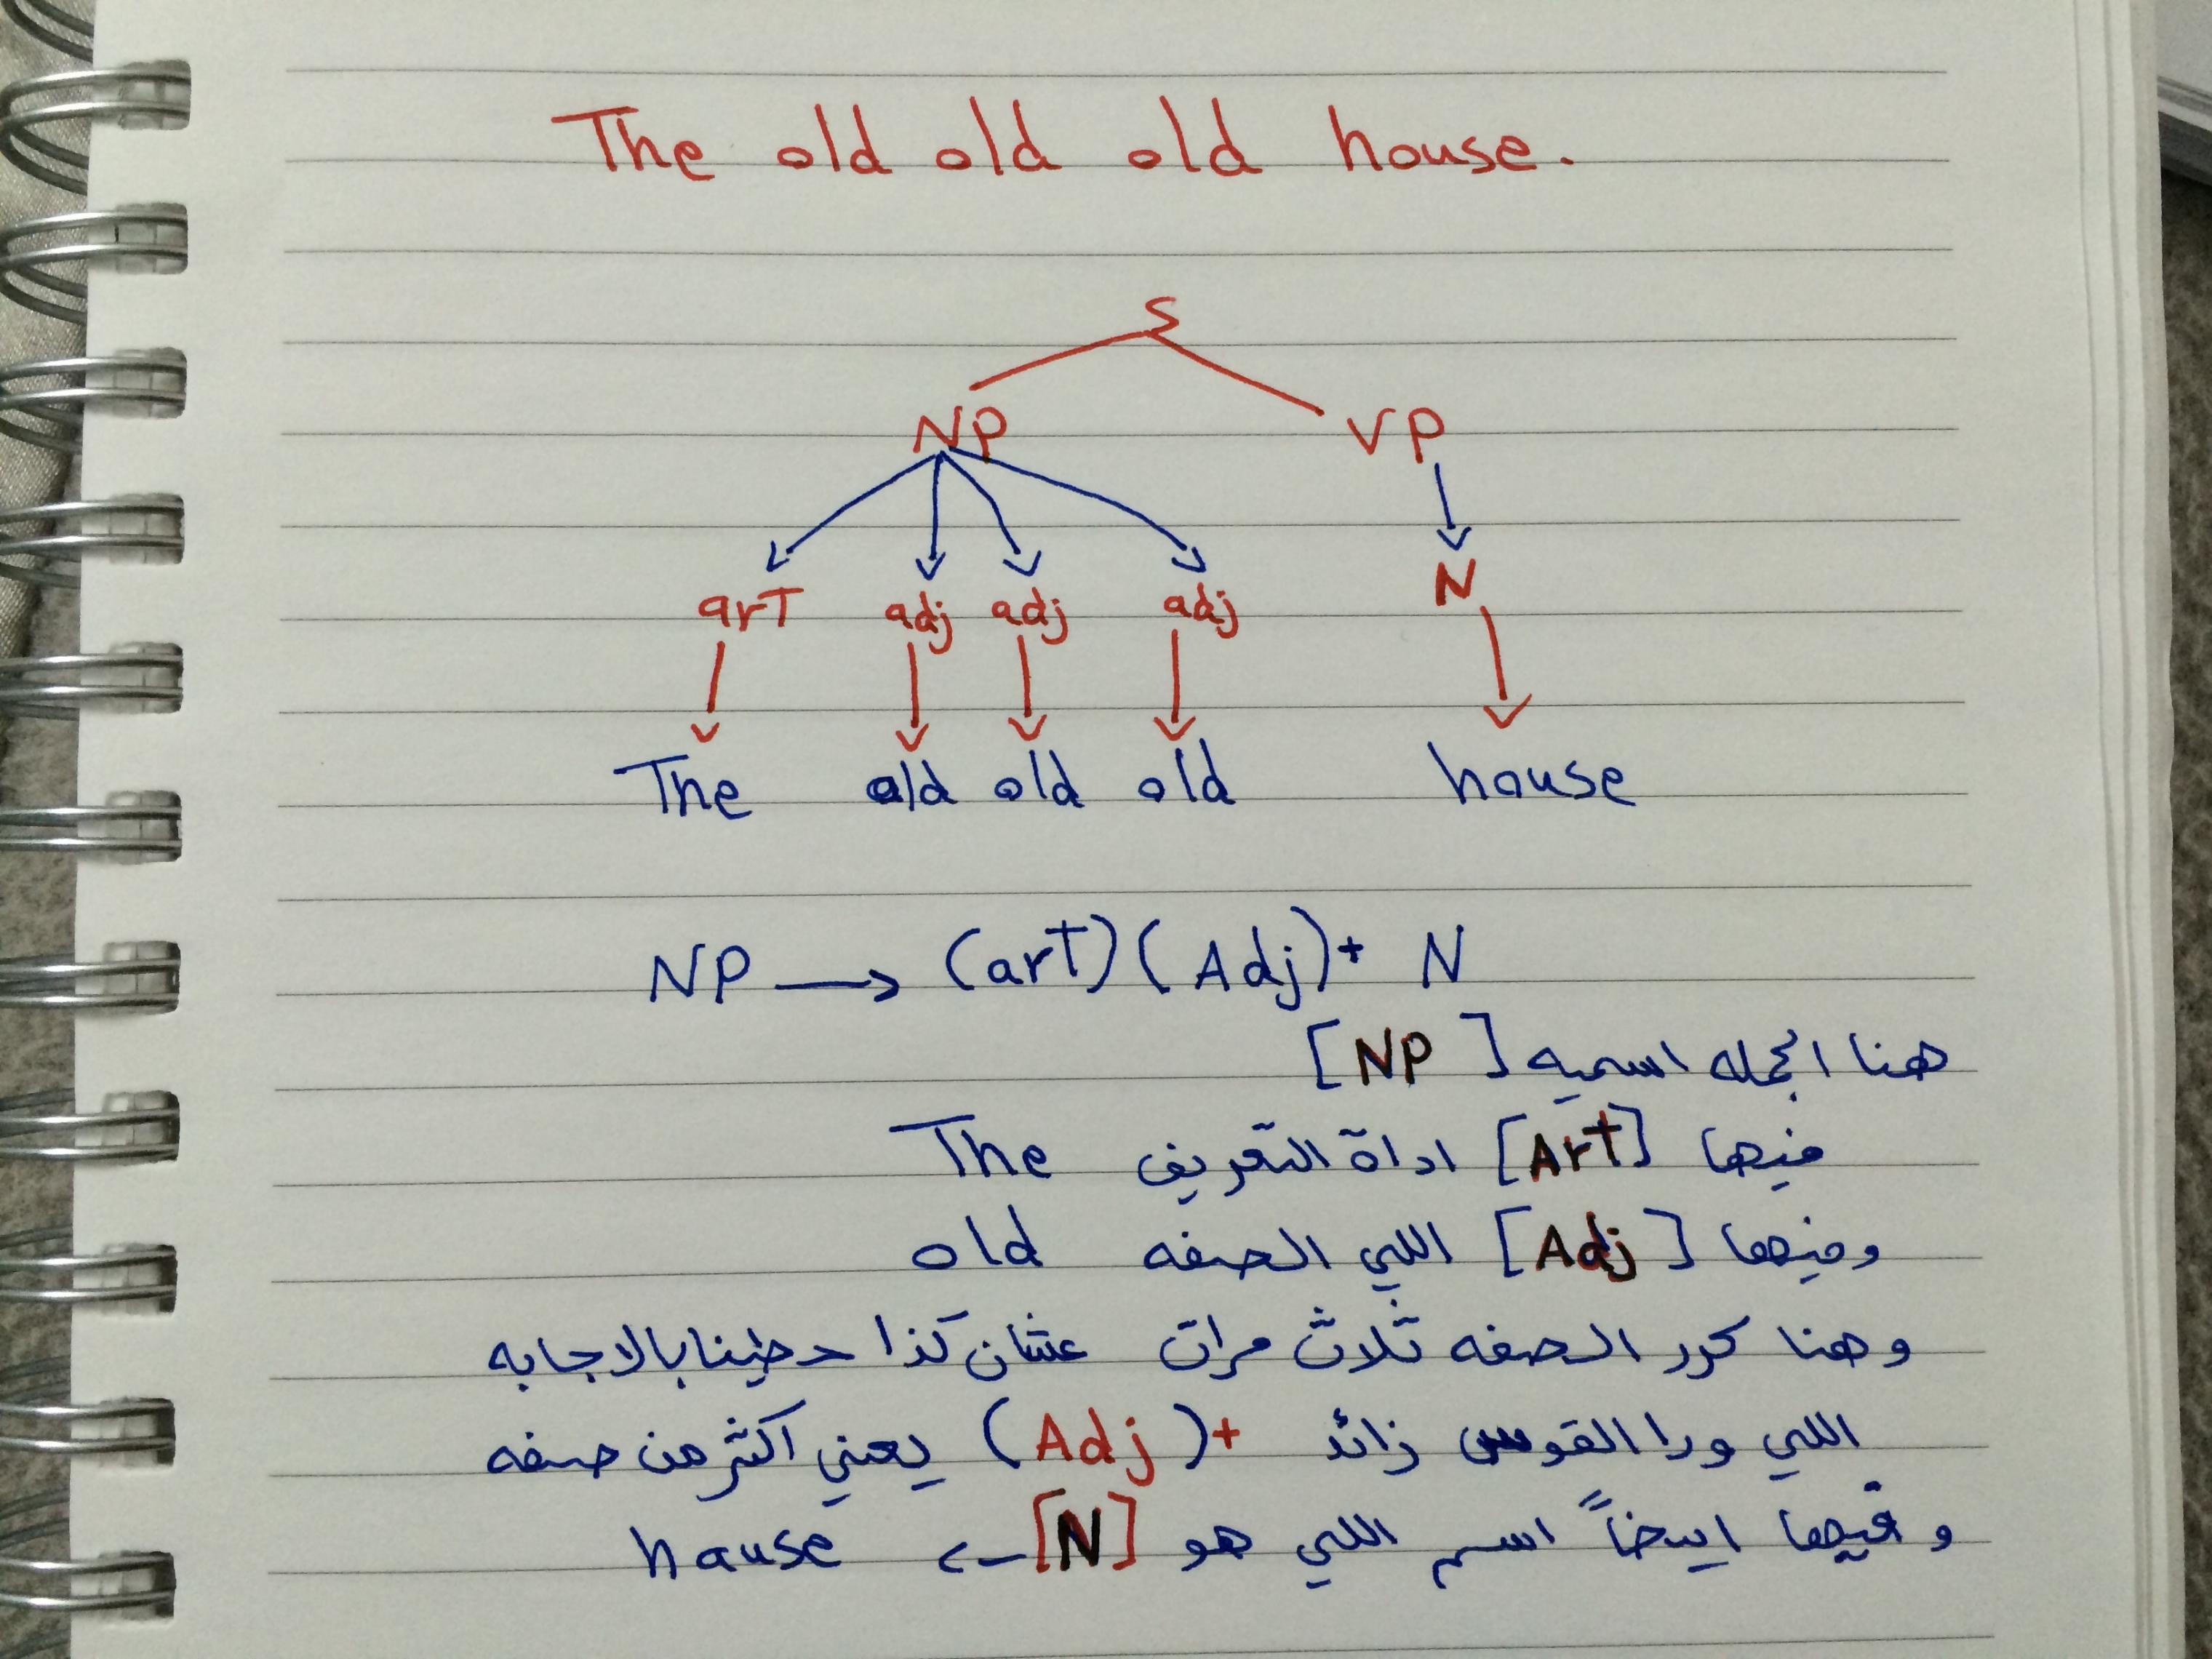 The old old old house.
S
NP VP
art adj adj adj N
The old old old house
NP → (art) (Adj)+ N
هنا الجمله اسميه [NP]
فيها [Art] اداة التعريف The
وفيها [Adj] اللي الصفه old
وهنا كرر الصفه ثلاث مرات عشان كذا حطينا بالاجابه
اللي ورا القوس زائد +(Adj) يعني اكثر من صفه
وفيها ايضاً اسم اللي هو [N] → hause